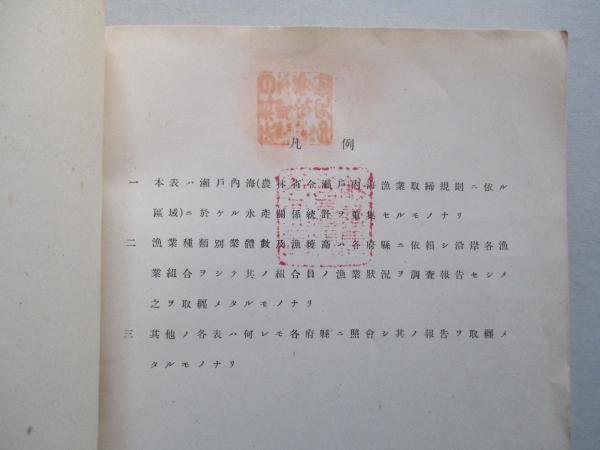 凡 例
一 本表ハ瀨戸內海(農林省令瀨戸內海漁業取締規則ニ依ル
區域)ニ於ケル水產關係統計ヲ蒐集セルモノナリ
二 漁業種類別業體數及漁獲高ハ各府縣ニ依賴シ沿岸各漁
業組合ヲシテ其ノ組合員ノ漁業狀況ヲ調査報告セシメ
之ヲ取纒メタルモノナリ
三 其他ノ各表ハ何レモ各府縣ニ照會シ其ノ報告ヲ取纒メ
タルモノナリ